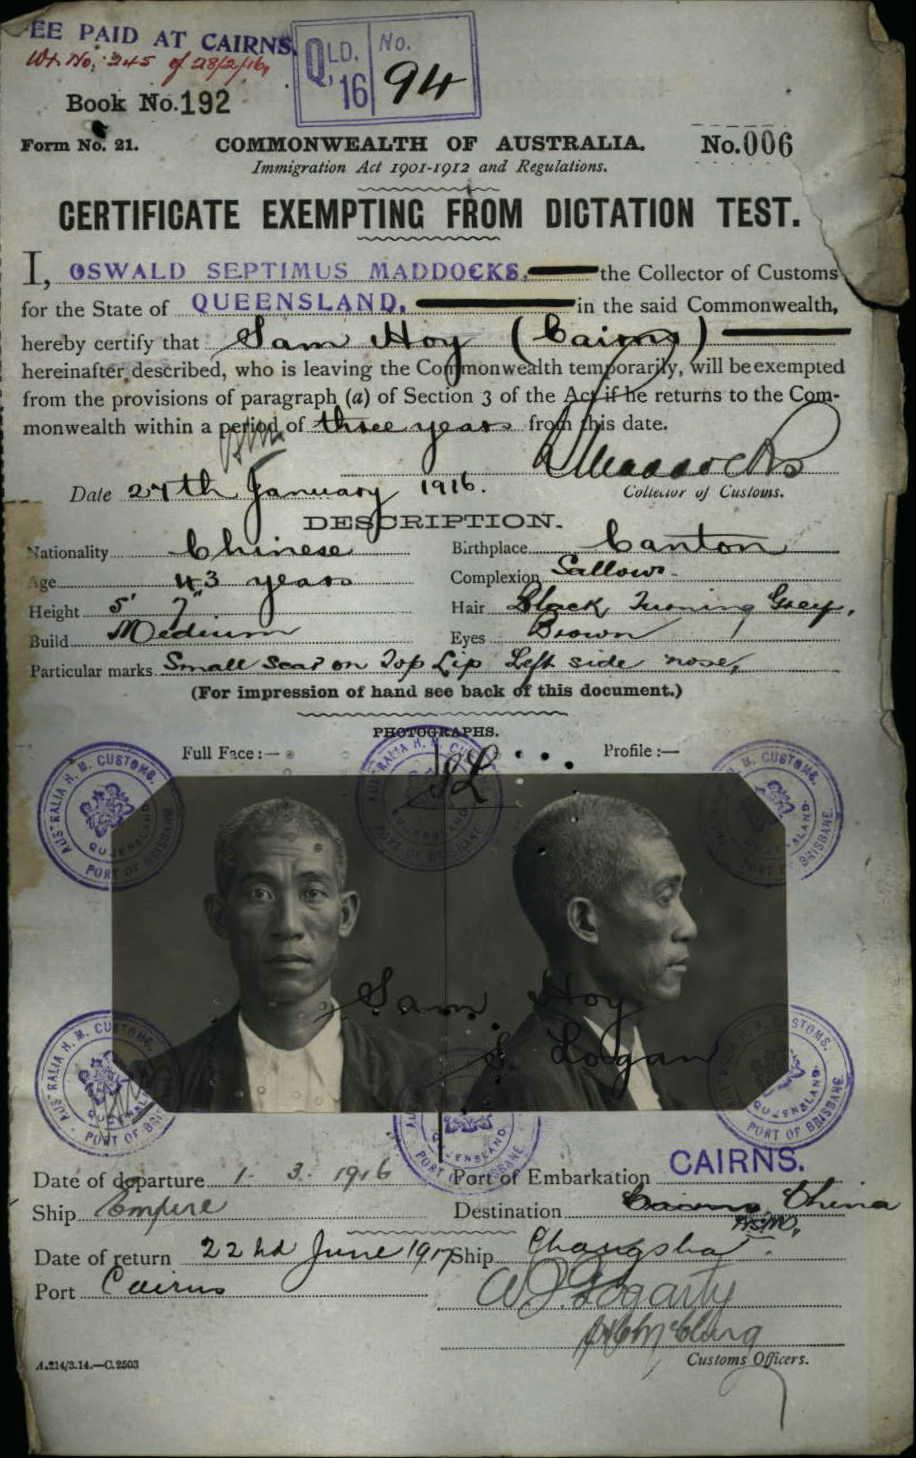 FEE PAID AT CAIRNS.
No. 245 of 28/2/16,
QLD. 16 No. 94
Book No. 192
Form No. 21.
COMMONWEALTH OF AUSTRALIA.
No. 006
Immigration Act 1901-1912 and Regulations.
CERTIFICATE EXEMPTING FROM DICTATION TEST.
I, OSWALD SEPTIMUS MADDOCKS, the Collector of Customs
for the State of QUEENSLAND, in the said Commonwealth,
hereby certify that Sam Hoy (Cairns)
hereinafter described, who is leaving the Commonwealth temporarily, will be exempted
from the provisions of paragraph (a) of Section 3 of the Act if he returns to the Com-
monwealth within a period of three years from this date.
Maddocks
Date 27th January 1916.
Collector of Customs.
DESCRIPTION.
Nationality Chinese Birthplace Canton
Age 43 years Complexion Sallow
Height 5' 7" Hair Black Turning Grey.
Build Medium Eyes Brown
Particular marks Small scar on Top Lip Left side nose,
(For impression of hand see back of this document.)
PHOTOGRAPHS.
Full Face:— Profile:—
AUSTRALIA H. M. CUSTOMS. QUEENSLAND. PORT OF BRISBANE.
AUSTRALIA H. M. CUSTOMS. QUEENSLAND. PORT OF BRISBANE.
AUSTRALIA H. M. CUSTOMS. QUEENSLAND. PORT OF BRISBANE.
Sam Hoy
S. Logan
AUSTRALIA H. M. CUSTOMS. QUEENSLAND. PORT OF BRISBANE.
AUSTRALIA H. M. CUSTOMS. QUEENSLAND. PORT OF BRISBANE.
QUEENSLAND. PORT OF BRISBANE.
Date of departure 1. 3. 1916 Port of Embarkation CAIRNS.
Ship Empire Destination Cairns China
Date of return 22nd June 1917 Ship Changsha.
Port Cairns A. J. Fogarty
McClung
Customs Officers.
A.214/3.14.—C.2503